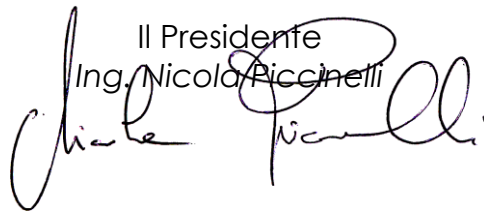 Il Presidente
Ing. Nicola Piccinelli
Nicola Piccinelli